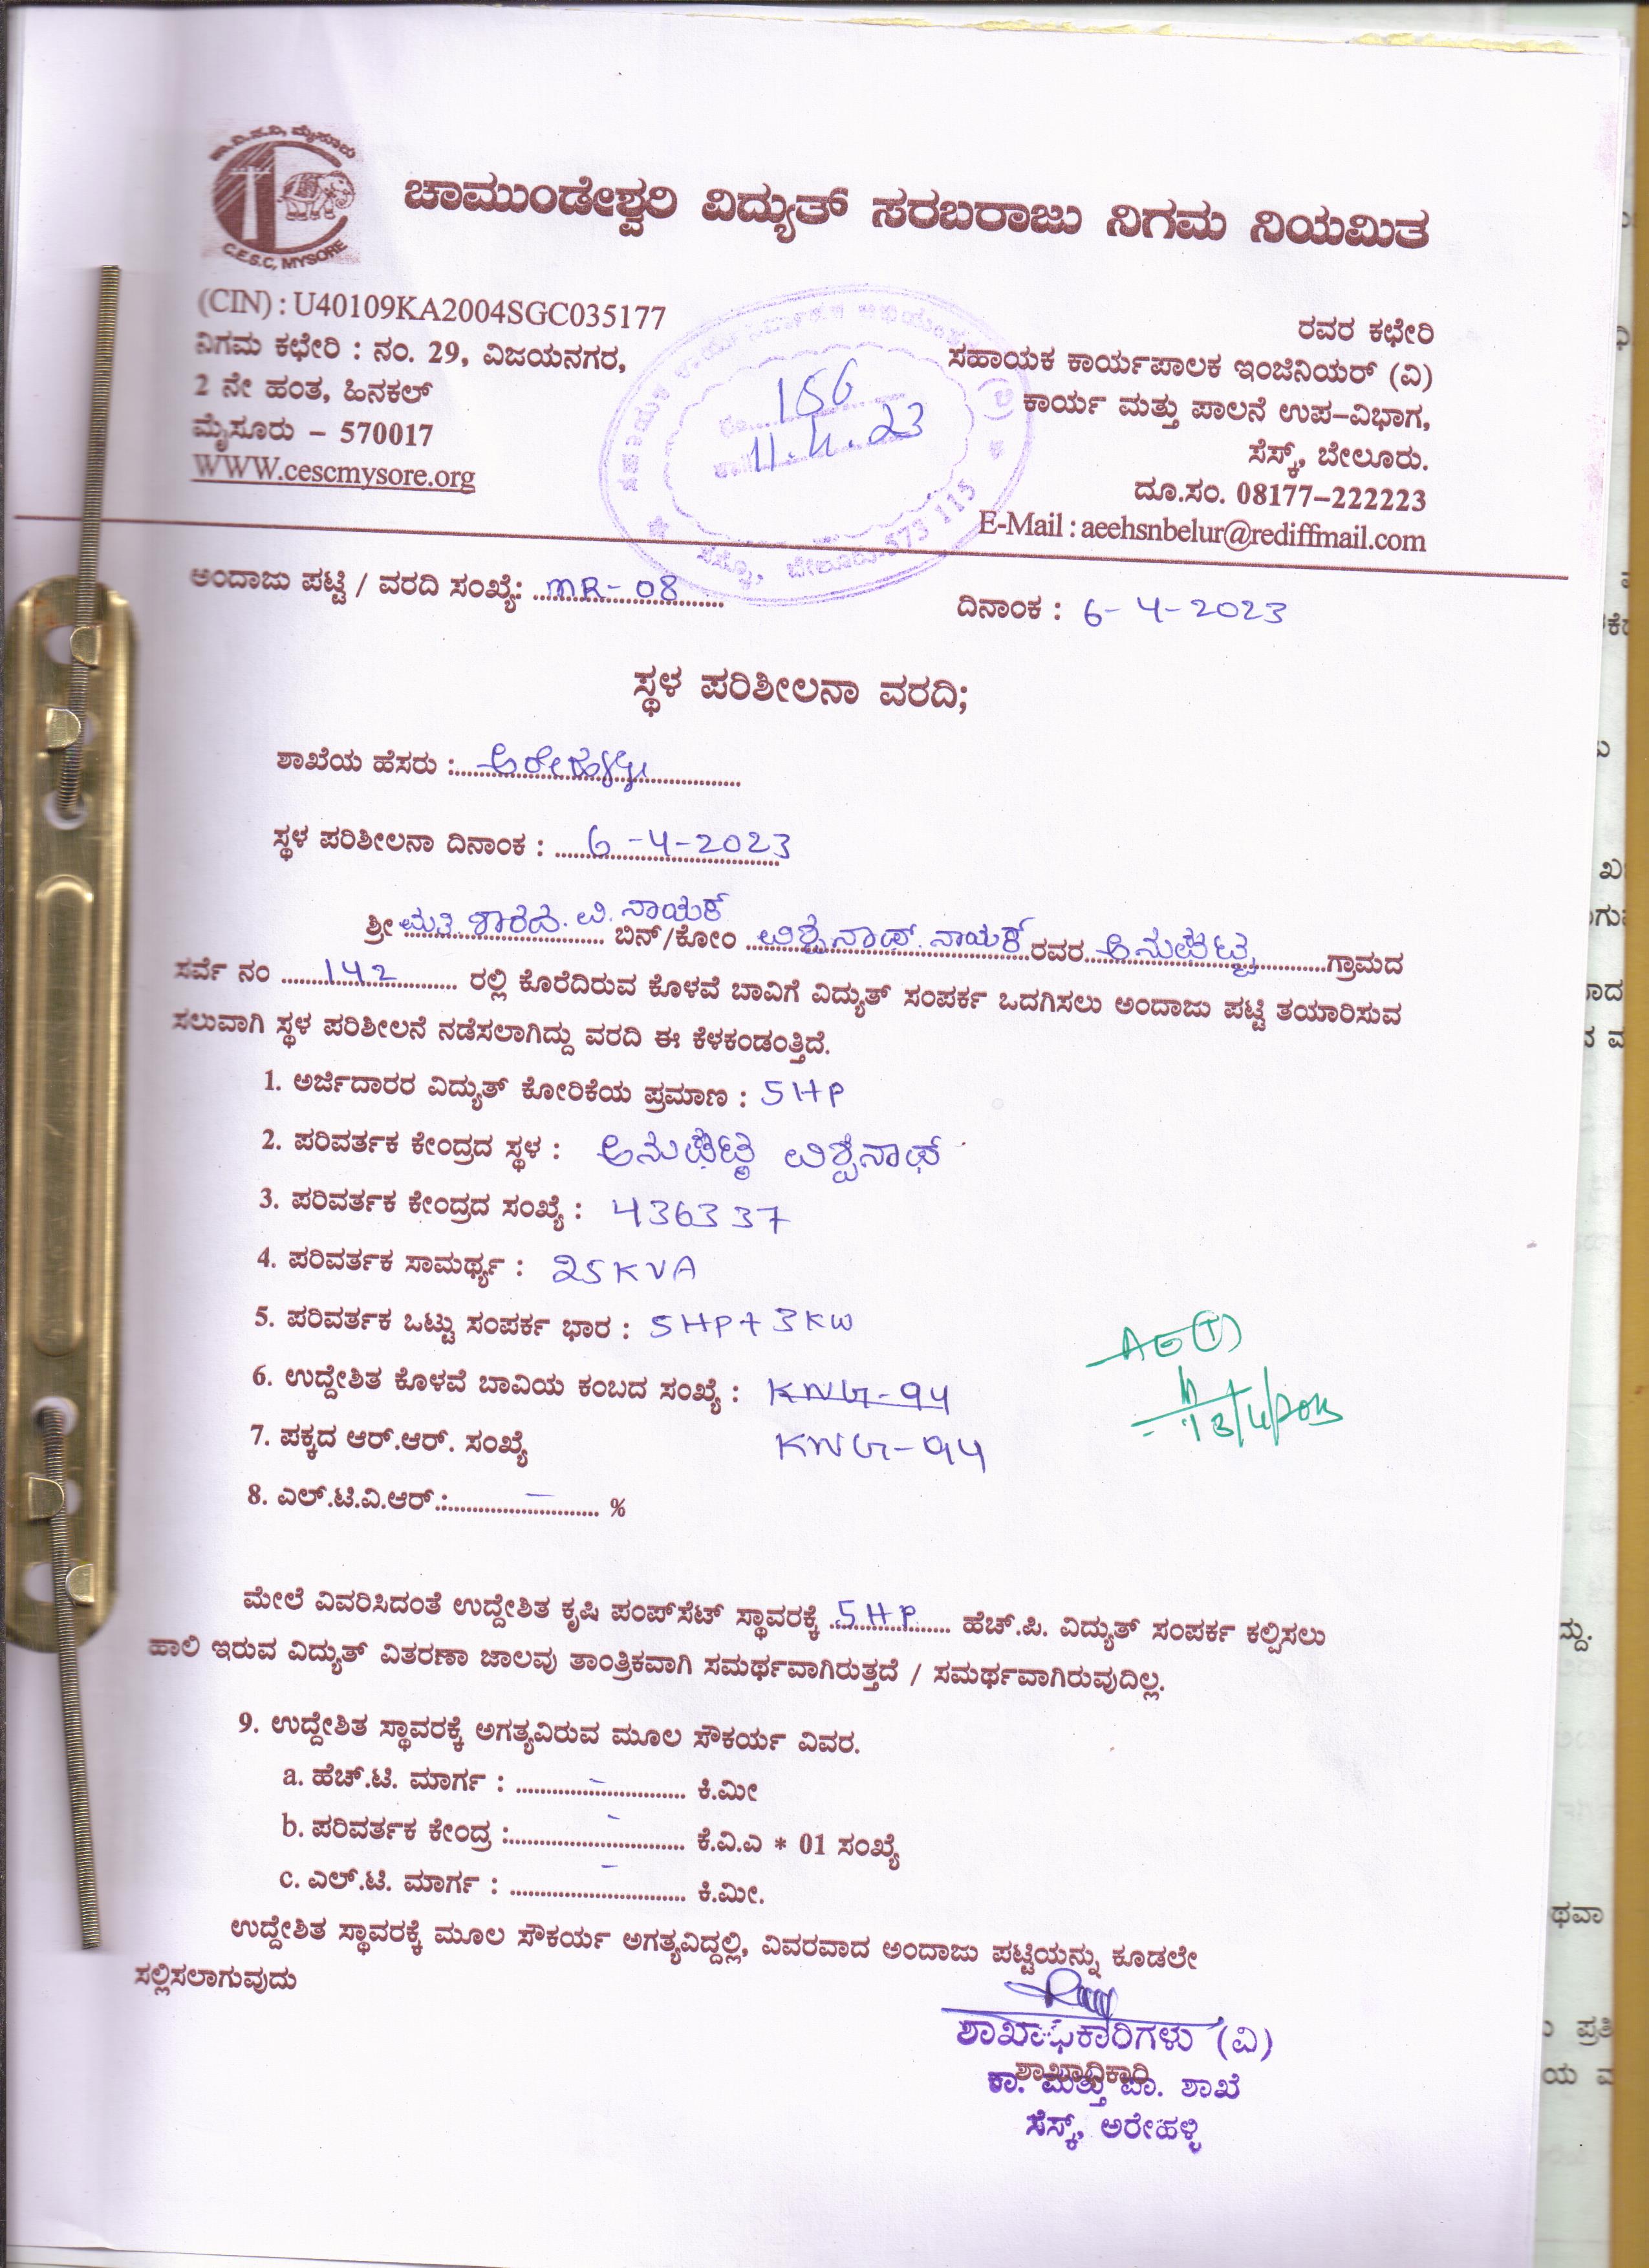 ಚಾ.ವಿ.ಸ.ನಿ, ಮೈಸೂರು
C.E.S.C, MYSORE
ಚಾಮುಂಡೇಶ್ವರಿ ವಿದ್ಯುತ್ ಸರಬರಾಜು ನಿಗಮ ನಿಯಮಿತ
(CIN) : U40109KA2004SGC035177
ನಿಗಮ ಕಛೇರಿ : ನಂ. 29, ವಿಜಯನಗರ,
2 ನೇ ಹಂತ, ಹಿನಕಲ್
ಮೈಸೂರು – 570017
WWW.cescmysore.org
156
11.4.23
ಸೆಸ್ಕ್, ಬೇಲೂರು-573 115
ರವರ ಕಛೇರಿ
ಸಹಾಯಕ ಕಾರ್ಯಪಾಲಕ ಇಂಜಿನಿಯರ್ (ವಿ)
ಕಾರ್ಯ ಮತ್ತು ಪಾಲನೆ ಉಪ-ವಿಭಾಗ,
ಸೆಸ್ಕ್, ಬೇಲೂರು.
ದೂ.ಸಂ. 08177-222223
E-Mail : aeehsnbelur@rediffmail.com
ಅಂದಾಜು ಪಟ್ಟಿ / ವರದಿ ಸಂಖ್ಯೆ: MR-08
ದಿನಾಂಕ : 6-4-2023
ಸ್ಥಳ ಪರಿಶೀಲನಾ ವರದಿ;
ಶಾಖೆಯ ಹೆಸರು : ಅರೇಹಳ್ಳಿ
ಸ್ಥಳ ಪರಿಶೀಲನಾ ದಿನಾಂಕ : 6-4-2023
ಶ್ರೀಮತಿ ಶಾರದ. ವಿ. ನಾಯಕ್ ಬಿನ್/ಕೋಂ ವಿಶ್ವನಾಥ್. ನಾಯಕ್ ರವರ ಅನುಘಟ್ಟ ಗ್ರಾಮದ
ಸರ್ವೆ ನಂ 142 ರಲ್ಲಿ ಕೊರೆದಿರುವ ಕೊಳವೆ ಬಾವಿಗೆ ವಿದ್ಯುತ್ ಸಂಪರ್ಕ ಒದಗಿಸಲು ಅಂದಾಜು ಪಟ್ಟಿ ತಯಾರಿಸುವ
ಸಲುವಾಗಿ ಸ್ಥಳ ಪರಿಶೀಲನೆ ನಡೆಸಲಾಗಿದ್ದು ವರದಿ ಈ ಕೆಳಕಂಡಂತ್ತಿದೆ.
1. ಅರ್ಜಿದಾರರ ವಿದ್ಯುತ್ ಕೋರಿಕೆಯ ಪ್ರಮಾಣ : 5HP
2. ಪರಿವರ್ತಕ ಕೇಂದ್ರದ ಸ್ಥಳ : ಅನುಘಟ್ಟ ವಿಶ್ವನಾಥ್
3. ಪರಿವರ್ತಕ ಕೇಂದ್ರದ ಸಂಖ್ಯೆ : 436337
4. ಪರಿವರ್ತಕ ಸಾಮರ್ಥ್ಯ : 25KVA
5. ಪರಿವರ್ತಕ ಒಟ್ಟು ಸಂಪರ್ಕ ಭಾರ : 5HP+3KW
6. ಉದ್ದೇಶಿತ ಕೊಳವೆ ಬಾವಿಯ ಕಂಬದ ಸಂಖ್ಯೆ : KNG-94
7. ಪಕ್ಕದ ಆರ್.ಆರ್. ಸಂಖ್ಯೆ KNG-94
8. ಎಲ್.ಟಿ.ವಿ.ಆರ್.: – %
AE(T)
13/4/2023
ಮೇಲೆ ವಿವರಿಸಿದಂತೆ ಉದ್ದೇಶಿತ ಕೃಷಿ ಪಂಪ್‌ಸೆಟ್ ಸ್ಥಾವರಕ್ಕೆ 5HP ಹೆಚ್.ಪಿ. ವಿದ್ಯುತ್ ಸಂಪರ್ಕ ಕಲ್ಪಿಸಲು
ಹಾಲಿ ಇರುವ ವಿದ್ಯುತ್ ವಿತರಣಾ ಜಾಲವು ತಾಂತ್ರಿಕವಾಗಿ ಸಮರ್ಥವಾಗಿರುತ್ತದೆ / ಸಮರ್ಥವಾಗಿರುವುದಿಲ್ಲ.
9. ಉದ್ದೇಶಿತ ಸ್ಥಾವರಕ್ಕೆ ಅಗತ್ಯವಿರುವ ಮೂಲ ಸೌಕರ್ಯ ವಿವರ.
a. ಹೆಚ್.ಟಿ. ಮಾರ್ಗ : – ಕಿ.ಮೀ
b. ಪರಿವರ್ತಕ ಕೇಂದ್ರ : – ಕೆ.ವಿ.ಎ * 01 ಸಂಖ್ಯೆ
c. ಎಲ್.ಟಿ. ಮಾರ್ಗ : – ಕಿ.ಮೀ.
ಉದ್ದೇಶಿತ ಸ್ಥಾವರಕ್ಕೆ ಮೂಲ ಸೌಕರ್ಯ ಅಗತ್ಯವಿದ್ದಲ್ಲಿ, ವಿವರವಾದ ಅಂದಾಜು ಪಟ್ಟಿಯನ್ನು ಕೂಡಲೇ
ಸಲ್ಲಿಸಲಾಗುವುದು
ಶಾಖಾಧಿಕಾರಿಗಳು (ವಿ)
ಶಾಖಾಧಿಕಾರಿ
ಕಾ. ಮತ್ತು ಪಾ. ಶಾಖೆ
ಸೆಸ್ಕ್, ಅರೇಹಳ್ಳಿ